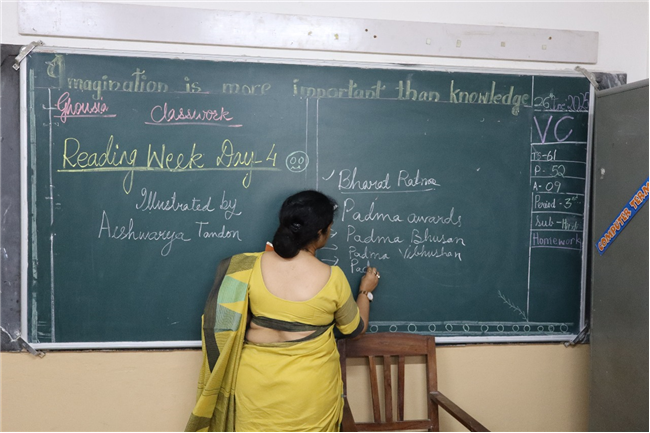 Imagination is more important than knowledge
Ghousia Classwork
Reading Week Day-4
Illustrated by
Aeshwarya Tandon
Bharat Ratna
Padma awards
Padma Bhusan
Padma Vibhushan
Pad
2025
VC
TS-61
P-52
A-09
Period-3rd
Sub-
Homework
COMPUTER TERM